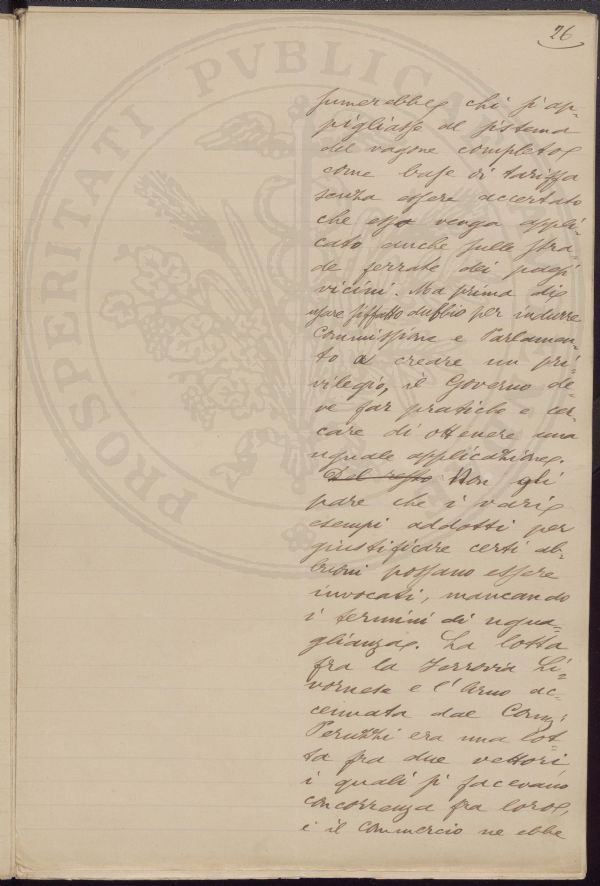 26
PROSPERITATI PVBLICAE
sumerebbe chi s'ap-
pigliasse al sistema
del vagone completo
come base di tariffa
senza essere accertato
che esso venga appli-
cato anche sulle stra-
de ferrate dei paesi
vicini. Ma prima di
usare siffatto dubbio per indurre
Commissione e Parlamen-
to a creare un pri-
vilegio, il Governo de-
ve far pratiche e cer-
care di ottenere una
uguale applicazione.
Del resto Non gli
pare che i vari
esempi addotti per
giustificare certi ab-
buoni possano essere
invocati, mancando
i termini di ugua-
glianza. La lotta
fra la Ferrovia Li-
vornese e l'Arno ac-
cennata dal Com.
Peruzzi era una lot-
ta fra due vettori
i quali si facevano
concorrenza fra loro,
e il commercio ne ebbe